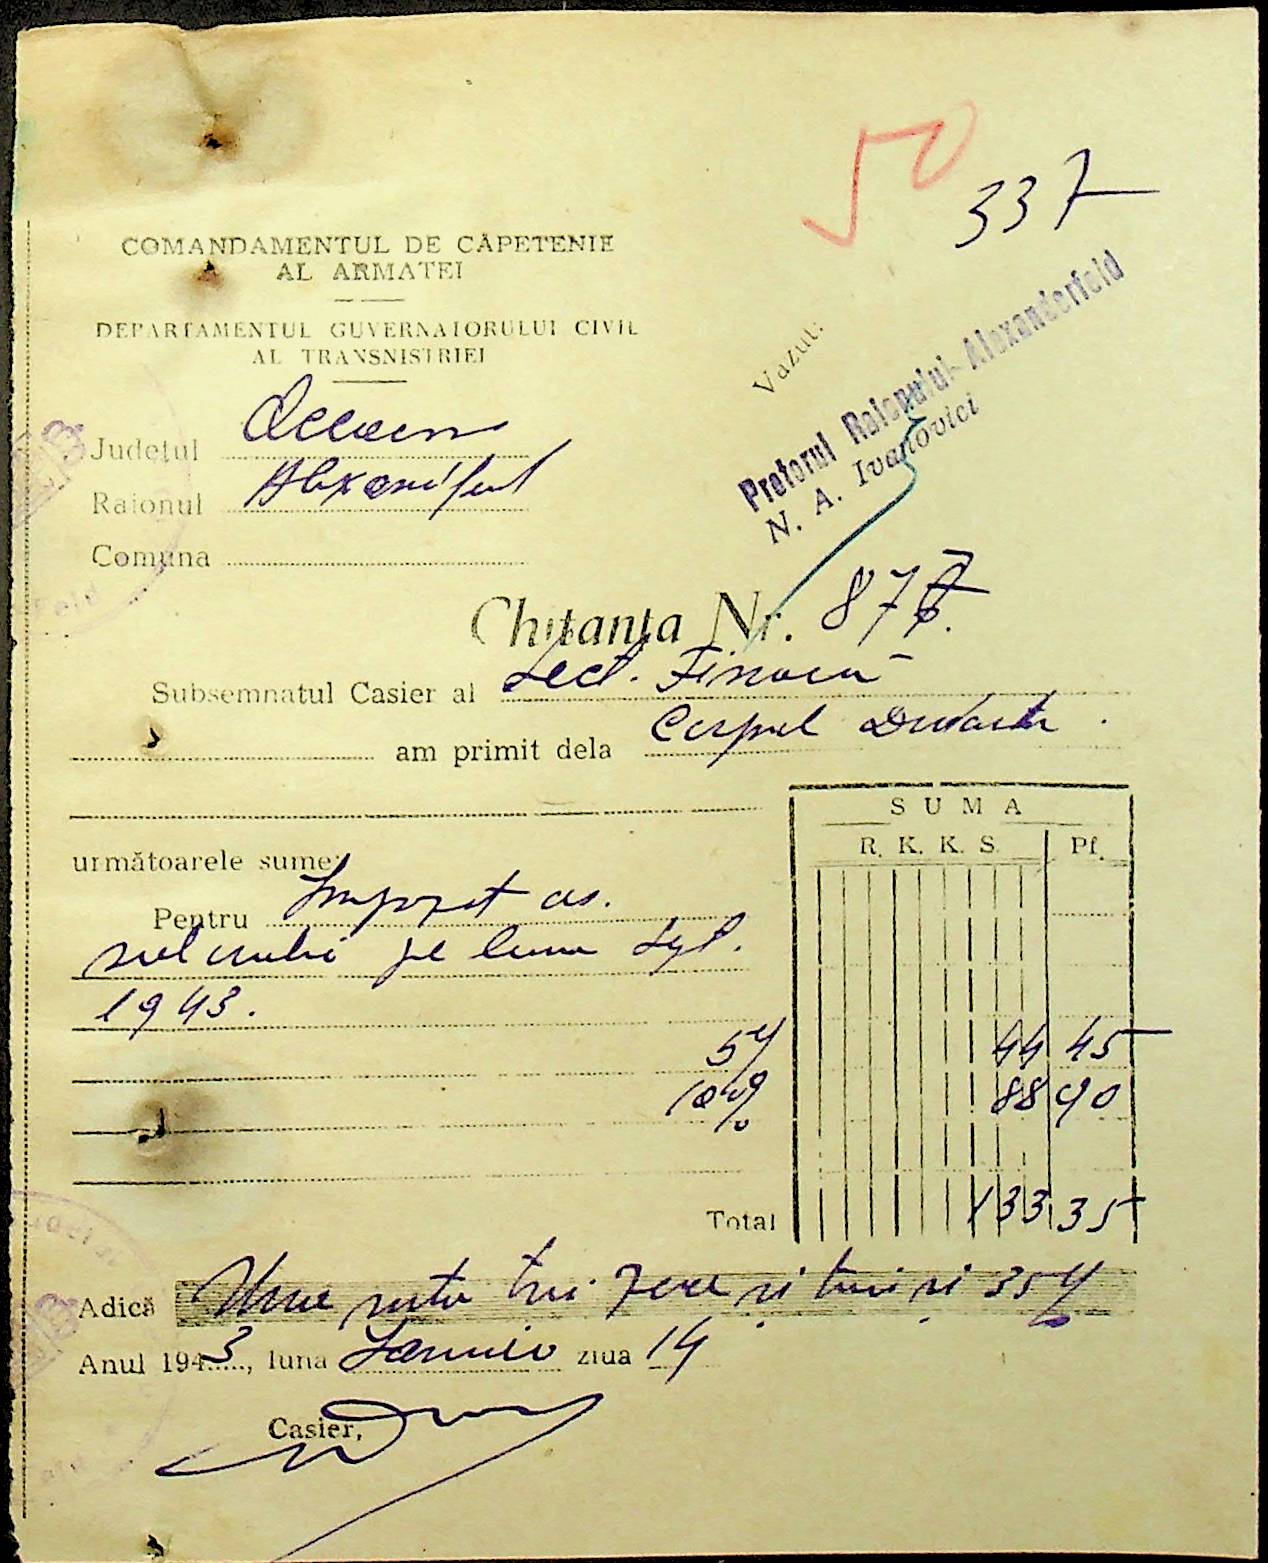 50
337
COMANDAMENTUL DE CĂPETENIE
AL ARMATEI
DEPARTAMENTUL GUVERNATORULUI CIVIL
AL TRANSNISTRIEI
Vazut:
Pretorul Raionului Alexanderfeld
N. A. Ivanovici
Județul
Raionul
Comuna
Chitanța Nr. 877
Subsemnatul Casier al Sect. Financiar
am primit dela Corpul Didactic
SUMA
R. K. K. S. Pf.
următoarele sume:
Pentru Impozit as.
pe luna Sept.
1943.
5% 44 45
10% 88 90
Total 133 35
Adică Una suta trei zeci si trei si 35
Anul 1943, luna ziua 14
Casier,